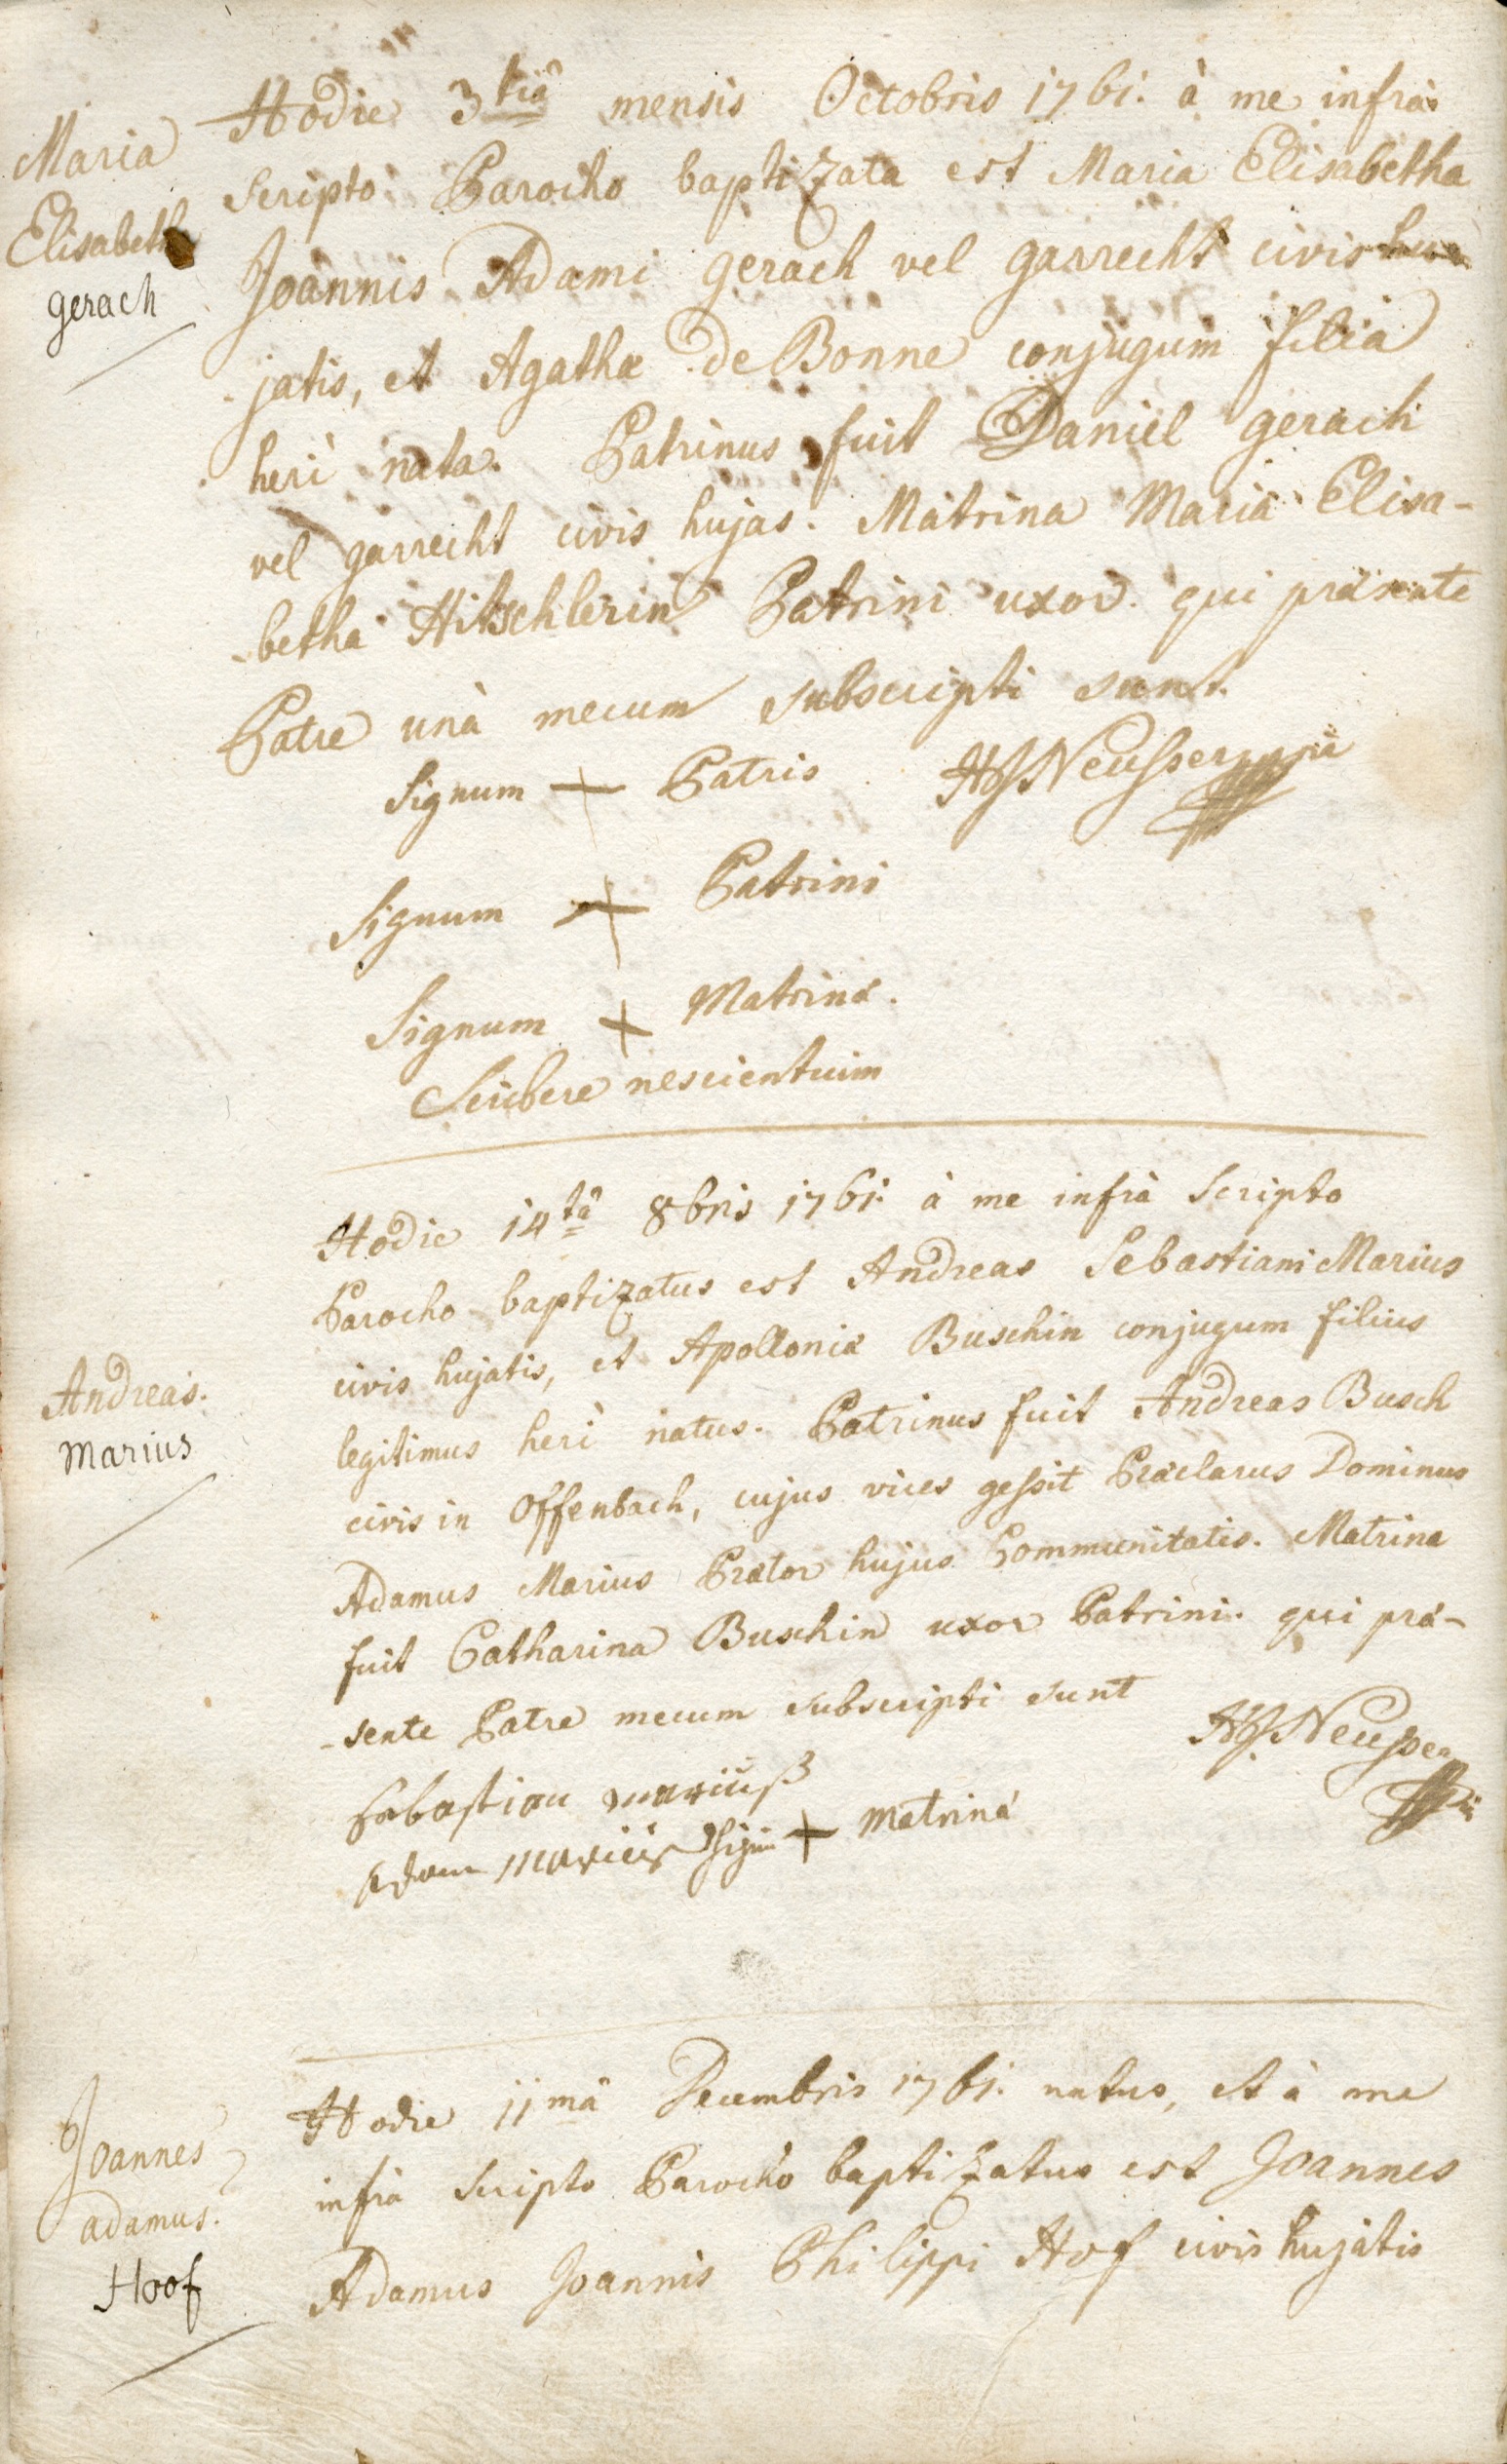 Maria
Elisabetha
gerach
Hodie 3tiâ mensis Octobris 1761. à me infrà
scripto Parocho baptizata est Maria Elisabetha
Joannis Adami gerach vel garrecht civis hu-
-jatis, et Agathæ de Bonne conjugum filia
heri nata. Patrinus fuit Daniel gerach
vel garrecht civis hujas. Matrina Maria Elisa-
-betha Hitschlerin Patrini uxor. qui præsente
Patre unà mecum subscripti sunt.
Signum + Patris HJ Neusser
Signum + Patrini
Signum + Matrinæ.
Scribere nescientium
Andreas.
Marius
Hodie 14tâ 8bris 1761. à me infrà scripto
Parocho baptizatus est Andreas Sebastiani Marius
civis hujatis, et Apolloniæ Buschin conjugum filius
legitimus heri natus. Patrinus fuit Andreas Busch
civis in Offenbach, cujus vices gessit Præclarus Dominus
Adamus Marius Prætor hujus Communitatis. Matrina
fuit Catharina Buschin uxor Patrini. qui præ-
-sente Patre mecum subscripti sunt
HJ. Neusser
Sebastian mariuß
Adam mariuß Signum + Matrinæ
Joannes
adamus.
Hoof
Hodie 11mâ Decembris 1761. natus, et à me
infrà scripto Parocho baptizatus est Joannes
Adamus Joannis Philippi Hof civis hujatis